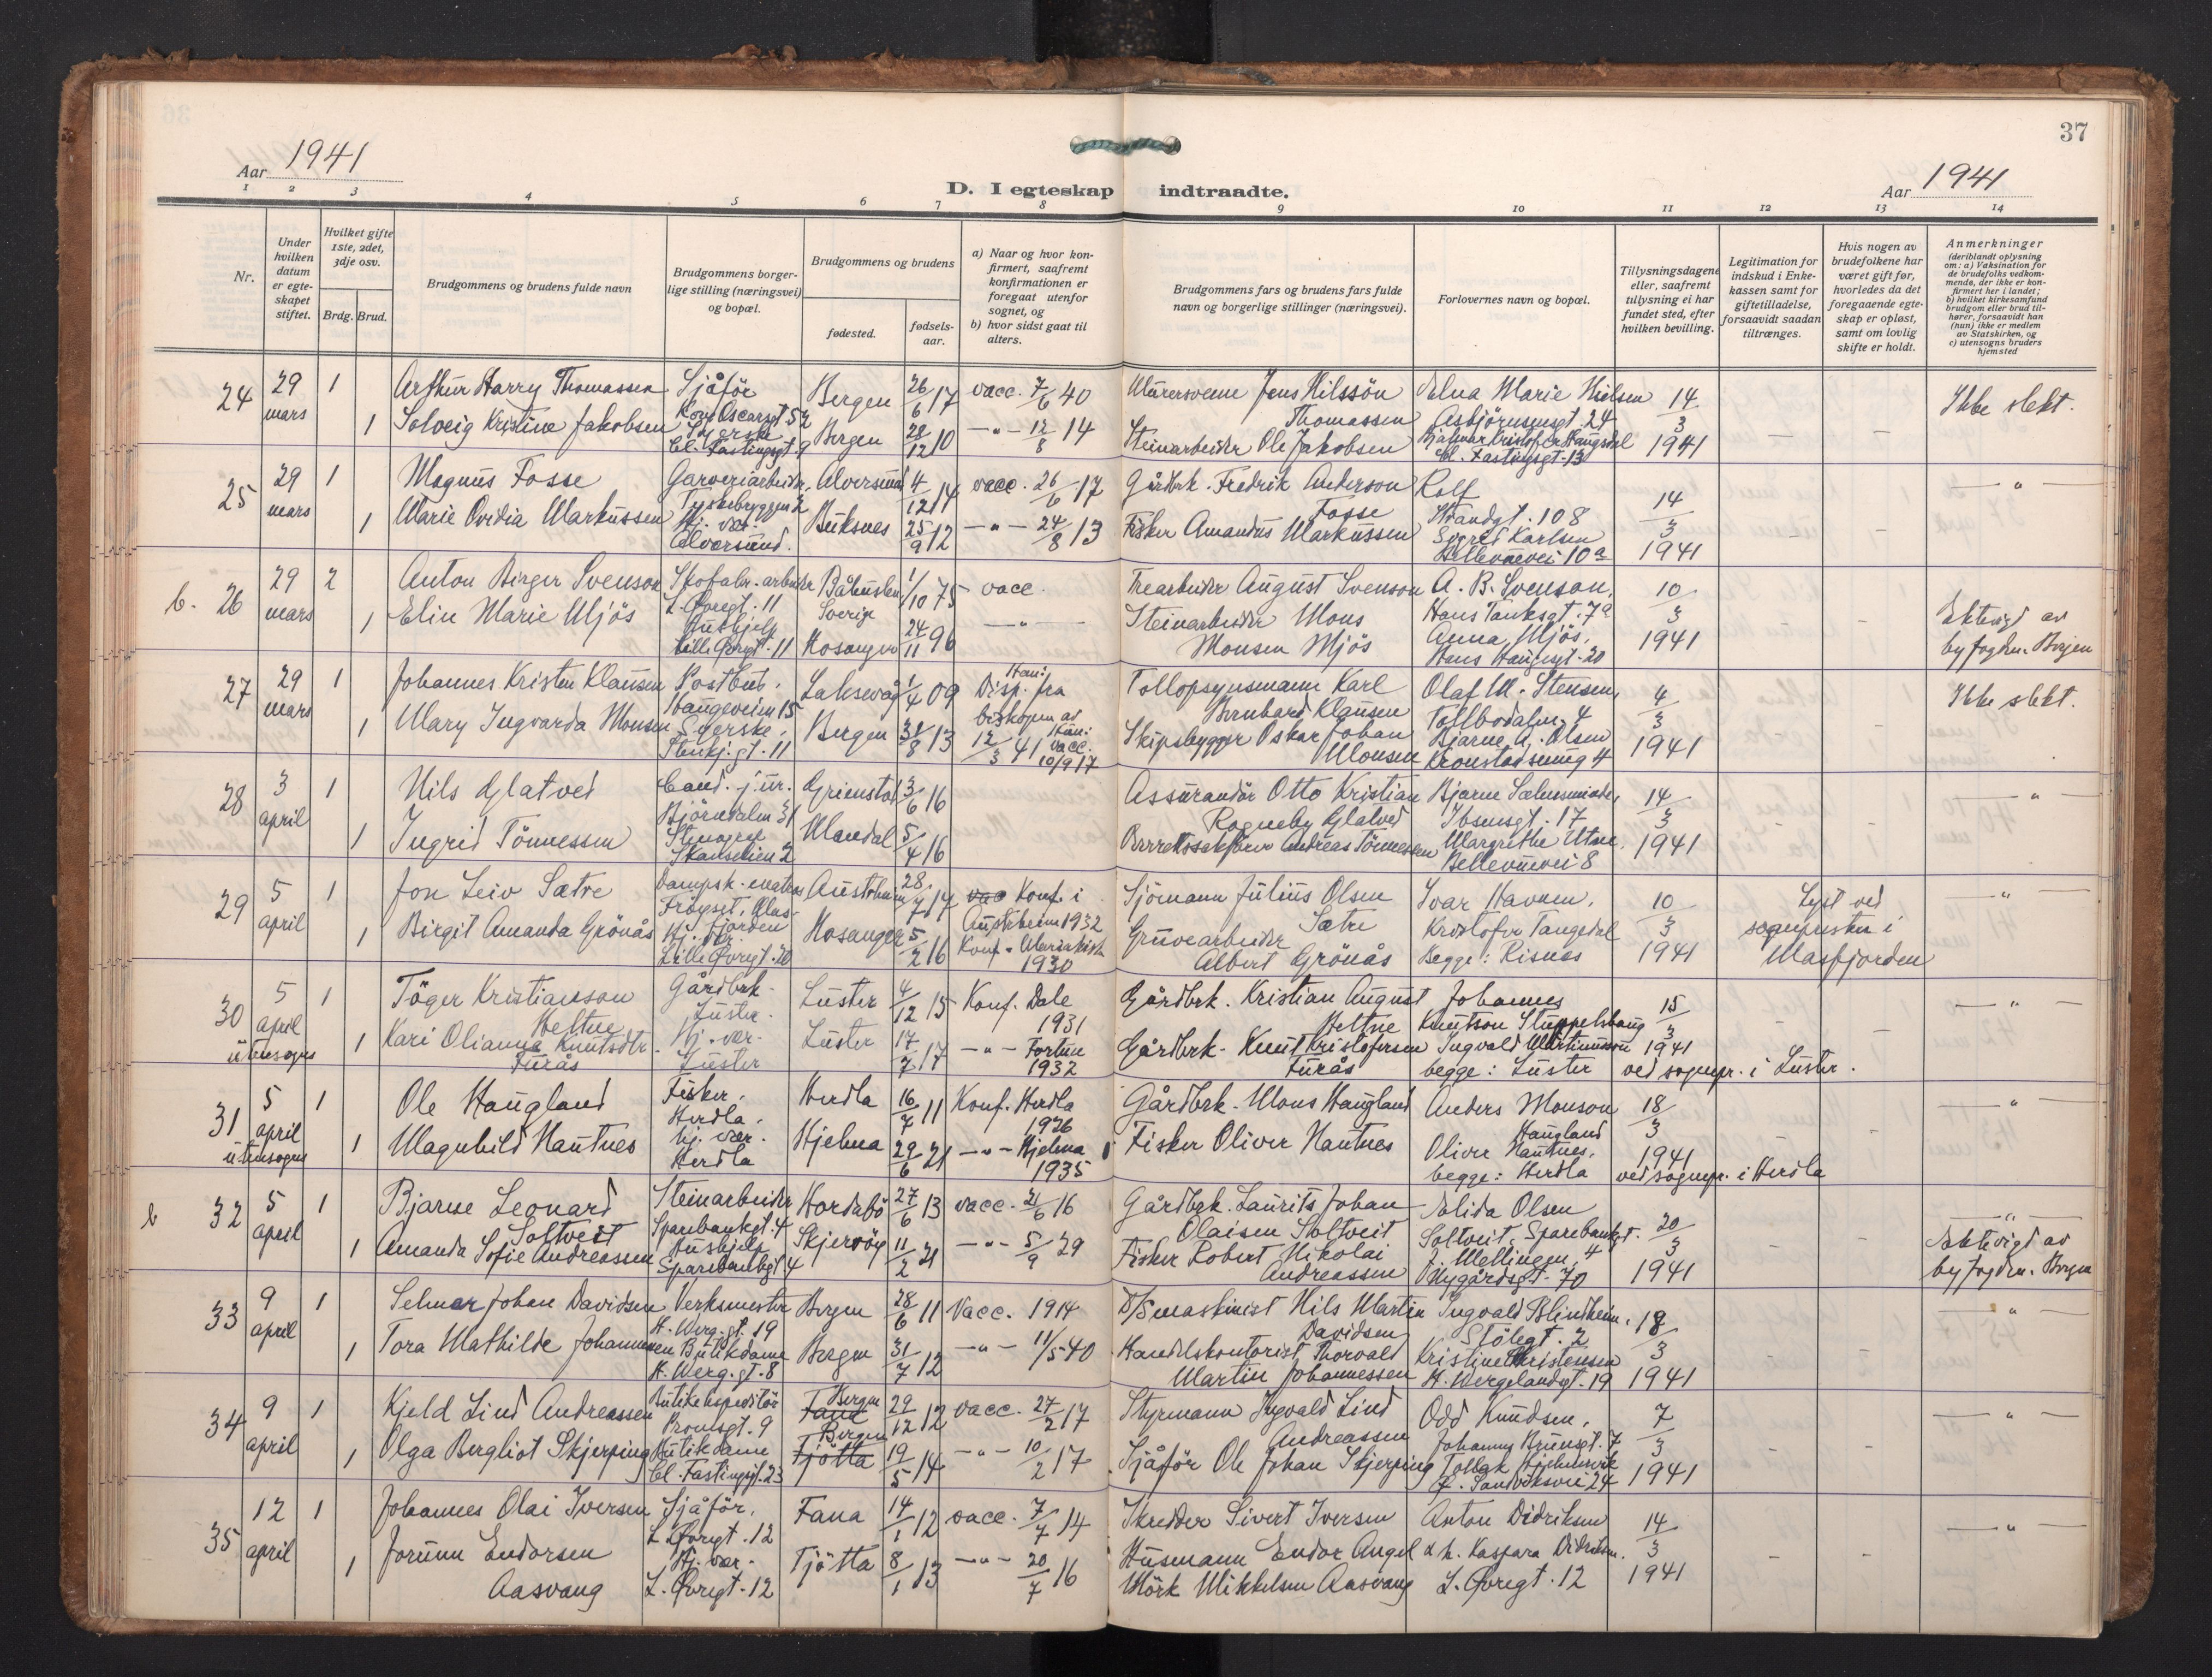 37
Aar 1941
D. I egteskap indtraadte.
Aar 1941
1 2 3 4 5 6 7 8 9 10 11 12 13 14
Nr.
Under hvilken datum er egteskapet stiftet.
Hvilket gifte 1ste, 2det, 3dje osv.
Brdg. Brud.
Brudgommens og brudens fulde navn
Brudgommens borgerlige stilling (næringsvei) og bopæl.
Brudgommens og brudens
fødested.
fødselsaar.
a) Naar og hvor konfirmert, saafremt konfirmationen er foregaat utenfor sognet, og
b) hvor sidst gaat til alters.
Brudgommens fars og brudens fars fulde navn og borgerlige stillinger (næringsvei).
Forlovernes navn og bopæl.
Tillysningsdagene eller, saafremt tillysning ei har fundet sted, efter hvilken bevilling.
Legitimation for indskud i Enkekassen samt for giftetilladelse, forsaavidt saadan tiltrænges.
Hvis nogen av brudefolkene har været gift før, hvorledes da det foregaaende egteskap er opløst, samt om lovlig skifte er holdt.
Anmerkninger
(deriblandt oplysning om: a) Vaksination for de brudefolks vedkommende, der ikke er konfirmert her i landet;
b) hvilket kirkesamfund brudgom eller brud tilhører, forsaavidt han (hun) ikke er medlem av Statskirken, og
c) utensogns bruders hjemsted
24 29 mars 1 Arthur Harry Thomassen Sjåför Kong Oscarsgt 52 Bergen 26/6 17 vacc. 7/6 40 Murersvenn Jens Nilssön Thomassen Elna Marie Nielsen Asbjörnsensgt. 24 14/3 1941 Ikke slekt.
1 Solveig Kristine Jakobsen Syerske Cl. Fastingsgt 9 Bergen 28/12 10 -"- 12/8 14 Steinarbeider Ole Jakobsen Cl. Fastingsgt. 13
25 29 mars 1 Magnus Fosse Garveriarbeider, Tyskebryggen 2 Alversund 4/12 14 vacc. 26/6 17 Gårdbrk. Fredrik Anderson Fosse Rolf Strandgt. 108 14/3 1941 — " —
1 Marie Ovidia Markussen Hj. vær. Alversund. Buksnes 25/9 12 -"- 24/8 13 Fisker Amandus Markussen Sverre Karlsen Bellevuevei 10a
b. 26 29 mars 2 Anton Birger Svenson Skofabr. arbeider L. Øvregt. 11 Båhuslen Sverige 1/10 75 vacc. Trearbeider August Svenson A. B. Svenson, Hans Tanksgt. 7a 10/3 1941
1 Elin Marie Mjös Hushjelp Lille Øvregt. 11 Hosanger 24/11 96 — " — Steinarbeider Mons Monsen Mjös Anna Mjös, Hans Haugesgt. 20 Ektevigd av byfogden. Bergen
27 29 mars 1 Johannes Kristen Klausen Postbud. Haugeveien 15 Laksevåg 1/4 09 Han: Disp. fra biskopen av 12/3 41 Tollopsynsmann Karl Bernhard Klausen Olaf M. Stensen, Tollbodalm. 4 4/3 1941 Ikke slekt.
1 Mary Ingvarda Monsen Syerske. Stenkj.gt. 11 Bergen 31/8 13 Hun: vacc. 10/9 17 Skipsbygger Oskar Johan Monsen Bjarne A. Olsen Kronstadsmug 4
28 3 april 1 Nils Glatved Cand. jur. Björndalen 31 Grimstad 3/6 16 Assurandör Otto Kristian Rogneby Glatved Bjarne Ibsensgt. 17 14/3 1941 — " —
1 Ingrid Tönnessen Skansebien 2 Mandal 5/4 16 Overrettssakförer Andreas Tönnessen Margrethe Utne, Bellevuevei 8
29 5 april 1 Jon Leiv Sætre Dampsk. matros Austrheim 28/7 14 vac Konf. i Austrheim 1932 Sjömann Julius Olsen Sætre Ivar Havnen, 10/3 1941 Lyst ved sognepresten i Masfjorden — " —
1 Birgit Amanda Grönås Hj. vær. Lille Øvregt. 20 Hosanger 5/2 16 Konf. Mariakirken 1930 Gruvearbeider Albert Grönås Kristofer Tangedal Begge: Risnes
30 5 april utensogns 1 Töger Kristianson Heltne Gårdbrk. Luster. Luster 4/12 15 Konf. Dale 1931 Gårdbrk. Kristian August Heltne Johannes Knutson Stuppelshaug 15/3 1941 — " —
1 Kari Olianna Knutsdtr. Furås Hj. vær. Luster Luster 17/7 17 -"- Fortun 1932 Gårdbrk. Knut Kristofersen Furås Ingvald Martinusson begge: Luster ved sognepr. i Luster.
31 5 april utensogns 1 Ole Haugland Fisker. Herdla. Herdla 16/7 11 Konf. Herdla 1926 Gårdbrk. Mons Haugland Anders Monson Haugland 18/3 1941 — " —
1 Magnhild Nautnes hj. vær. Herdla Hjelma 29/6 21 -"- Hjelma 1935 Fisker Oliver Nautnes Oliver Nautnes, begge: Herdla ved sognepr. i Herdla
b 32 5 april 1 Bjarne Leonard Soltveit Steinarbeider Sparebankgt. 4 Hordabö 27/6 13 vacc. 21/6 16 Gårdbrk. Laurits Johan Olaisen Soltveit Elida Olsen Soltveit, Sparebankgt. 4 20/3 1941 — " —
1 Amanda Sofie Andreassen Hushjelp Sparebankgt 4 Skjervöy 11/2 21 -"- 5/9 29 Fisker Robert Nikolai Andreassen J. Mellingen, Nygårdsgt. 70 Ektevigd av byfogden. Bergen
33 9 april 1 Selmar Johan Davidsen Verksmester H. Werg. gt. 19 Bergen 28/6 11 Vacc. 1914 D/S maskinist Nils Martin Davidsen Ingvald Blindheim, Stölegt. 2 18/3 1941 — " —
1 Tora Mathilde Johannessen Butikdame H. Werg. gt. 8 Bergen 31/7 12 -"- 11/5 40 Handelskontorist Thorvald Martin Johannessen Kristine Kristensen H. Wergelandsgt. 19
34 9 april 1 Kjeld Lind Andreassen Butikekspeditör Promsgt. 9 Fane Bergen 29/12 12 vacc. 27/2 17 Styrmann Ingvald Lind Andreassen Odd Knudsen, Johannes Brunsgt. 7 7/3 1941 — " —
1 Olga Bergliot Skjerping Butikdame Cl. Fastingsgt. 23 Tjötta Bergen 19/5 14 -"- 10/2 17 Sjåför Ole Johan Skjerping Tollak Ø. Sandviksvei 24
35 12 april 1 Johannes Olai Iversen Sjåför, L. Øvregt. 12 Fana 14/1 12 vacc. 7/7 14 Skredder Sivert Iversen Anton Didriksen 14/3 1941 — " —
1 Jorunn Endorsen Aasvang Hj. vær. L. Øvregt. 12 Tjötta 8/1 13 -"- 20/7 16 Husmann Endor Angel Mörk Mikkelsen Aasvang & h. Kaspara Didriksen. L. Øvregt. 12